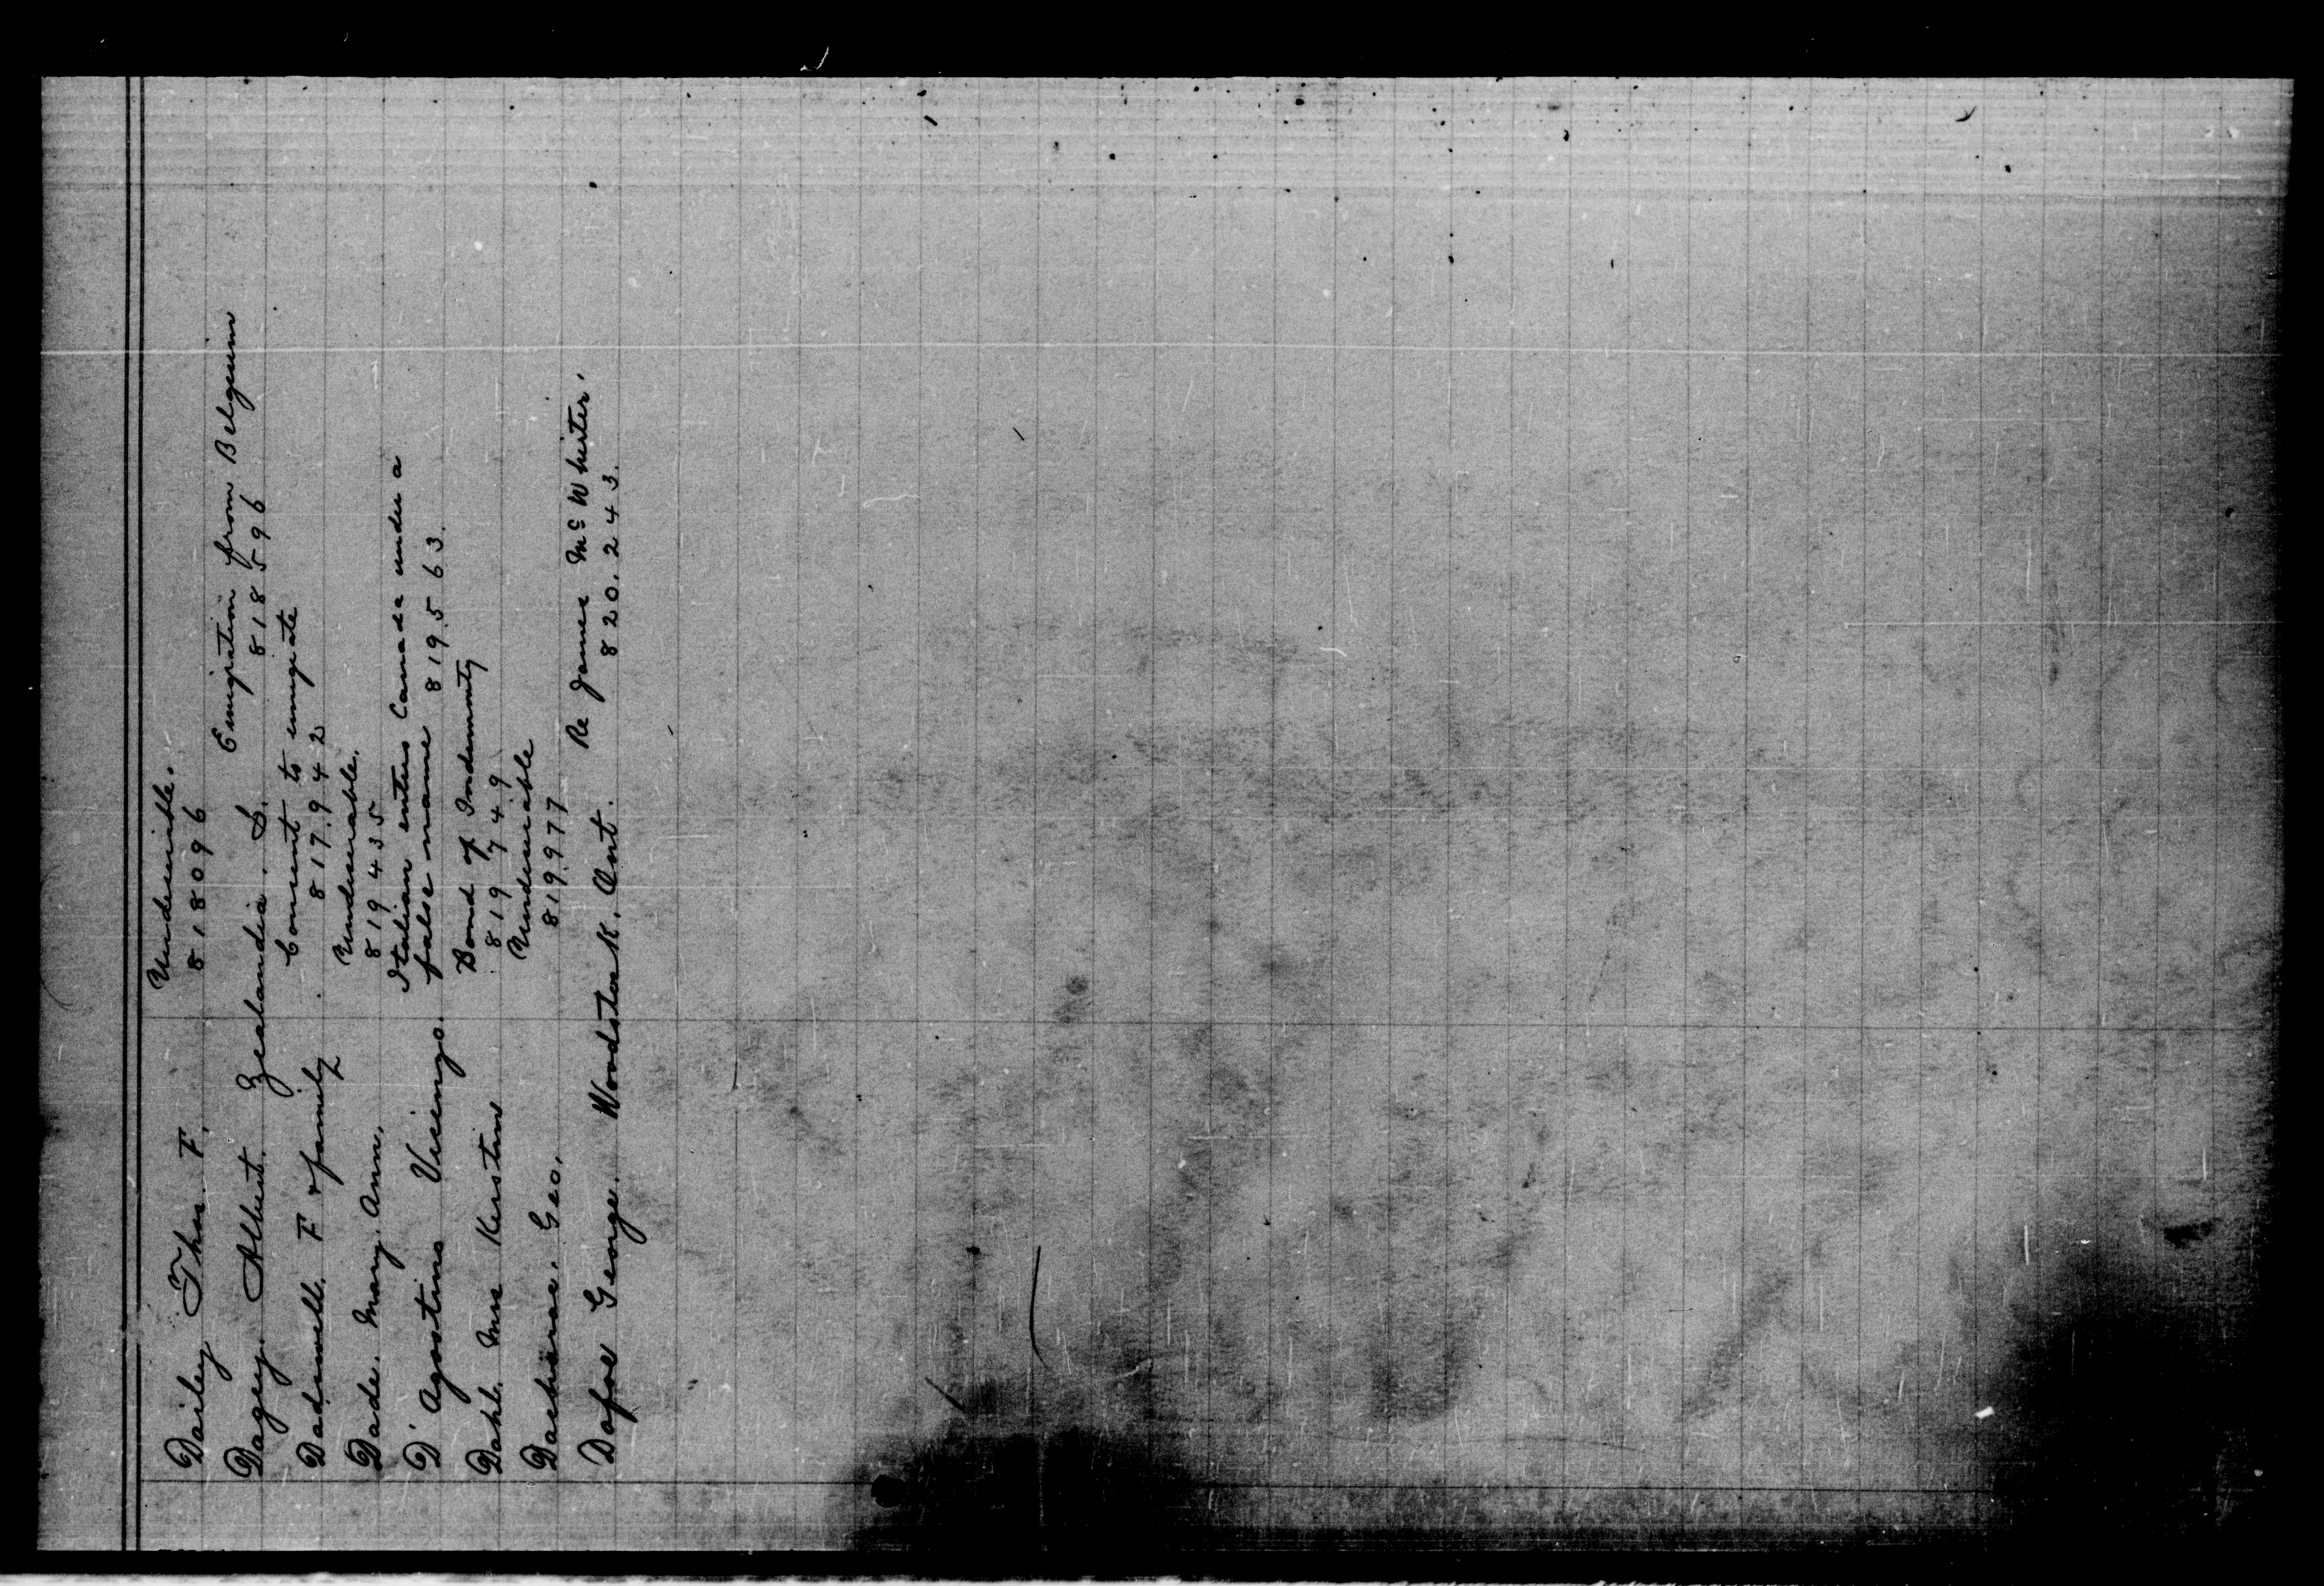 Dailey Thos. F. Undesirable.
818096
Dagey. Albert. Zealandia. S. Emigration from Belgium
818596
Dadswell. F & family Consent to emigrate
817942
Dade. Mary. Ann. Undesirable.
819435
D'Agostino Vicinzo. Italian enters Canada under a
false name 819563.
Dahl. Mrs Kerstin Bond of Indemnity
819749
Geo. Undesirable
819977
Dafoe George. Woodstock. Ont. Re James McWhirter.
820.243.